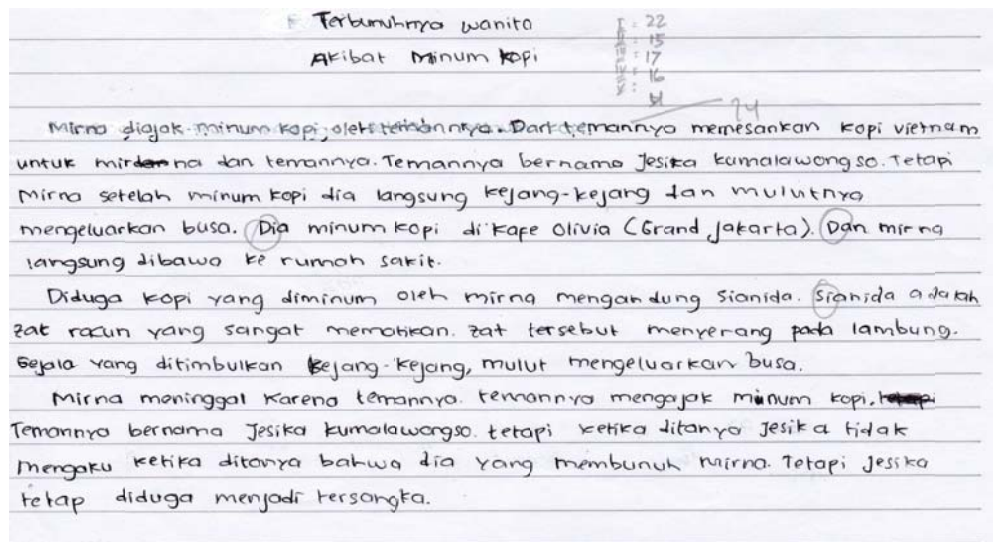 Terbunuhnya wanita
Akibat Minum kopi
I : 22
II : 15
III : 17
IV : 16
V :
74
Mirna diajak minum kopi, oleh temannya. Dari temannya memesankan kopi vietnam
untuk mirna dan temannya. Temannya bernama Jesika kumalawongso. Tetapi
Mirna setelah minum kopi dia langsung kejang-kejang dan mulutnya
mengeluarkan busa. Dia minum kopi di kafe Olivia (Grand Jakarta). Dan mirna
langsung dibawa ke rumah sakit.
Diduga kopi yang diminum oleh mirna mengandung Sianida. Sianida adalah
zat racun yang sangat mematikan. zat tersebut menyerang pada lambung.
Gejala yang ditimbulkan kejang-kejang, mulut mengeluarkan busa.
Mirna meninggal karena temannya. temannya mengajak minum kopi.
Temannya bernama Jesika kumalawongso. tetapi ketika ditanya Jesika tidak
mengaku ketika ditanya bahwa dia yang membunuh mirna. Tetapi Jessika
tetap diduga menjadi tersangka.